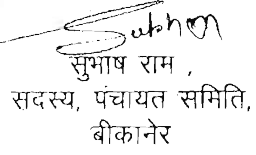 Subhash
सुभाष राम ,
सदस्य, पंचायत समिति,
बीकानेर